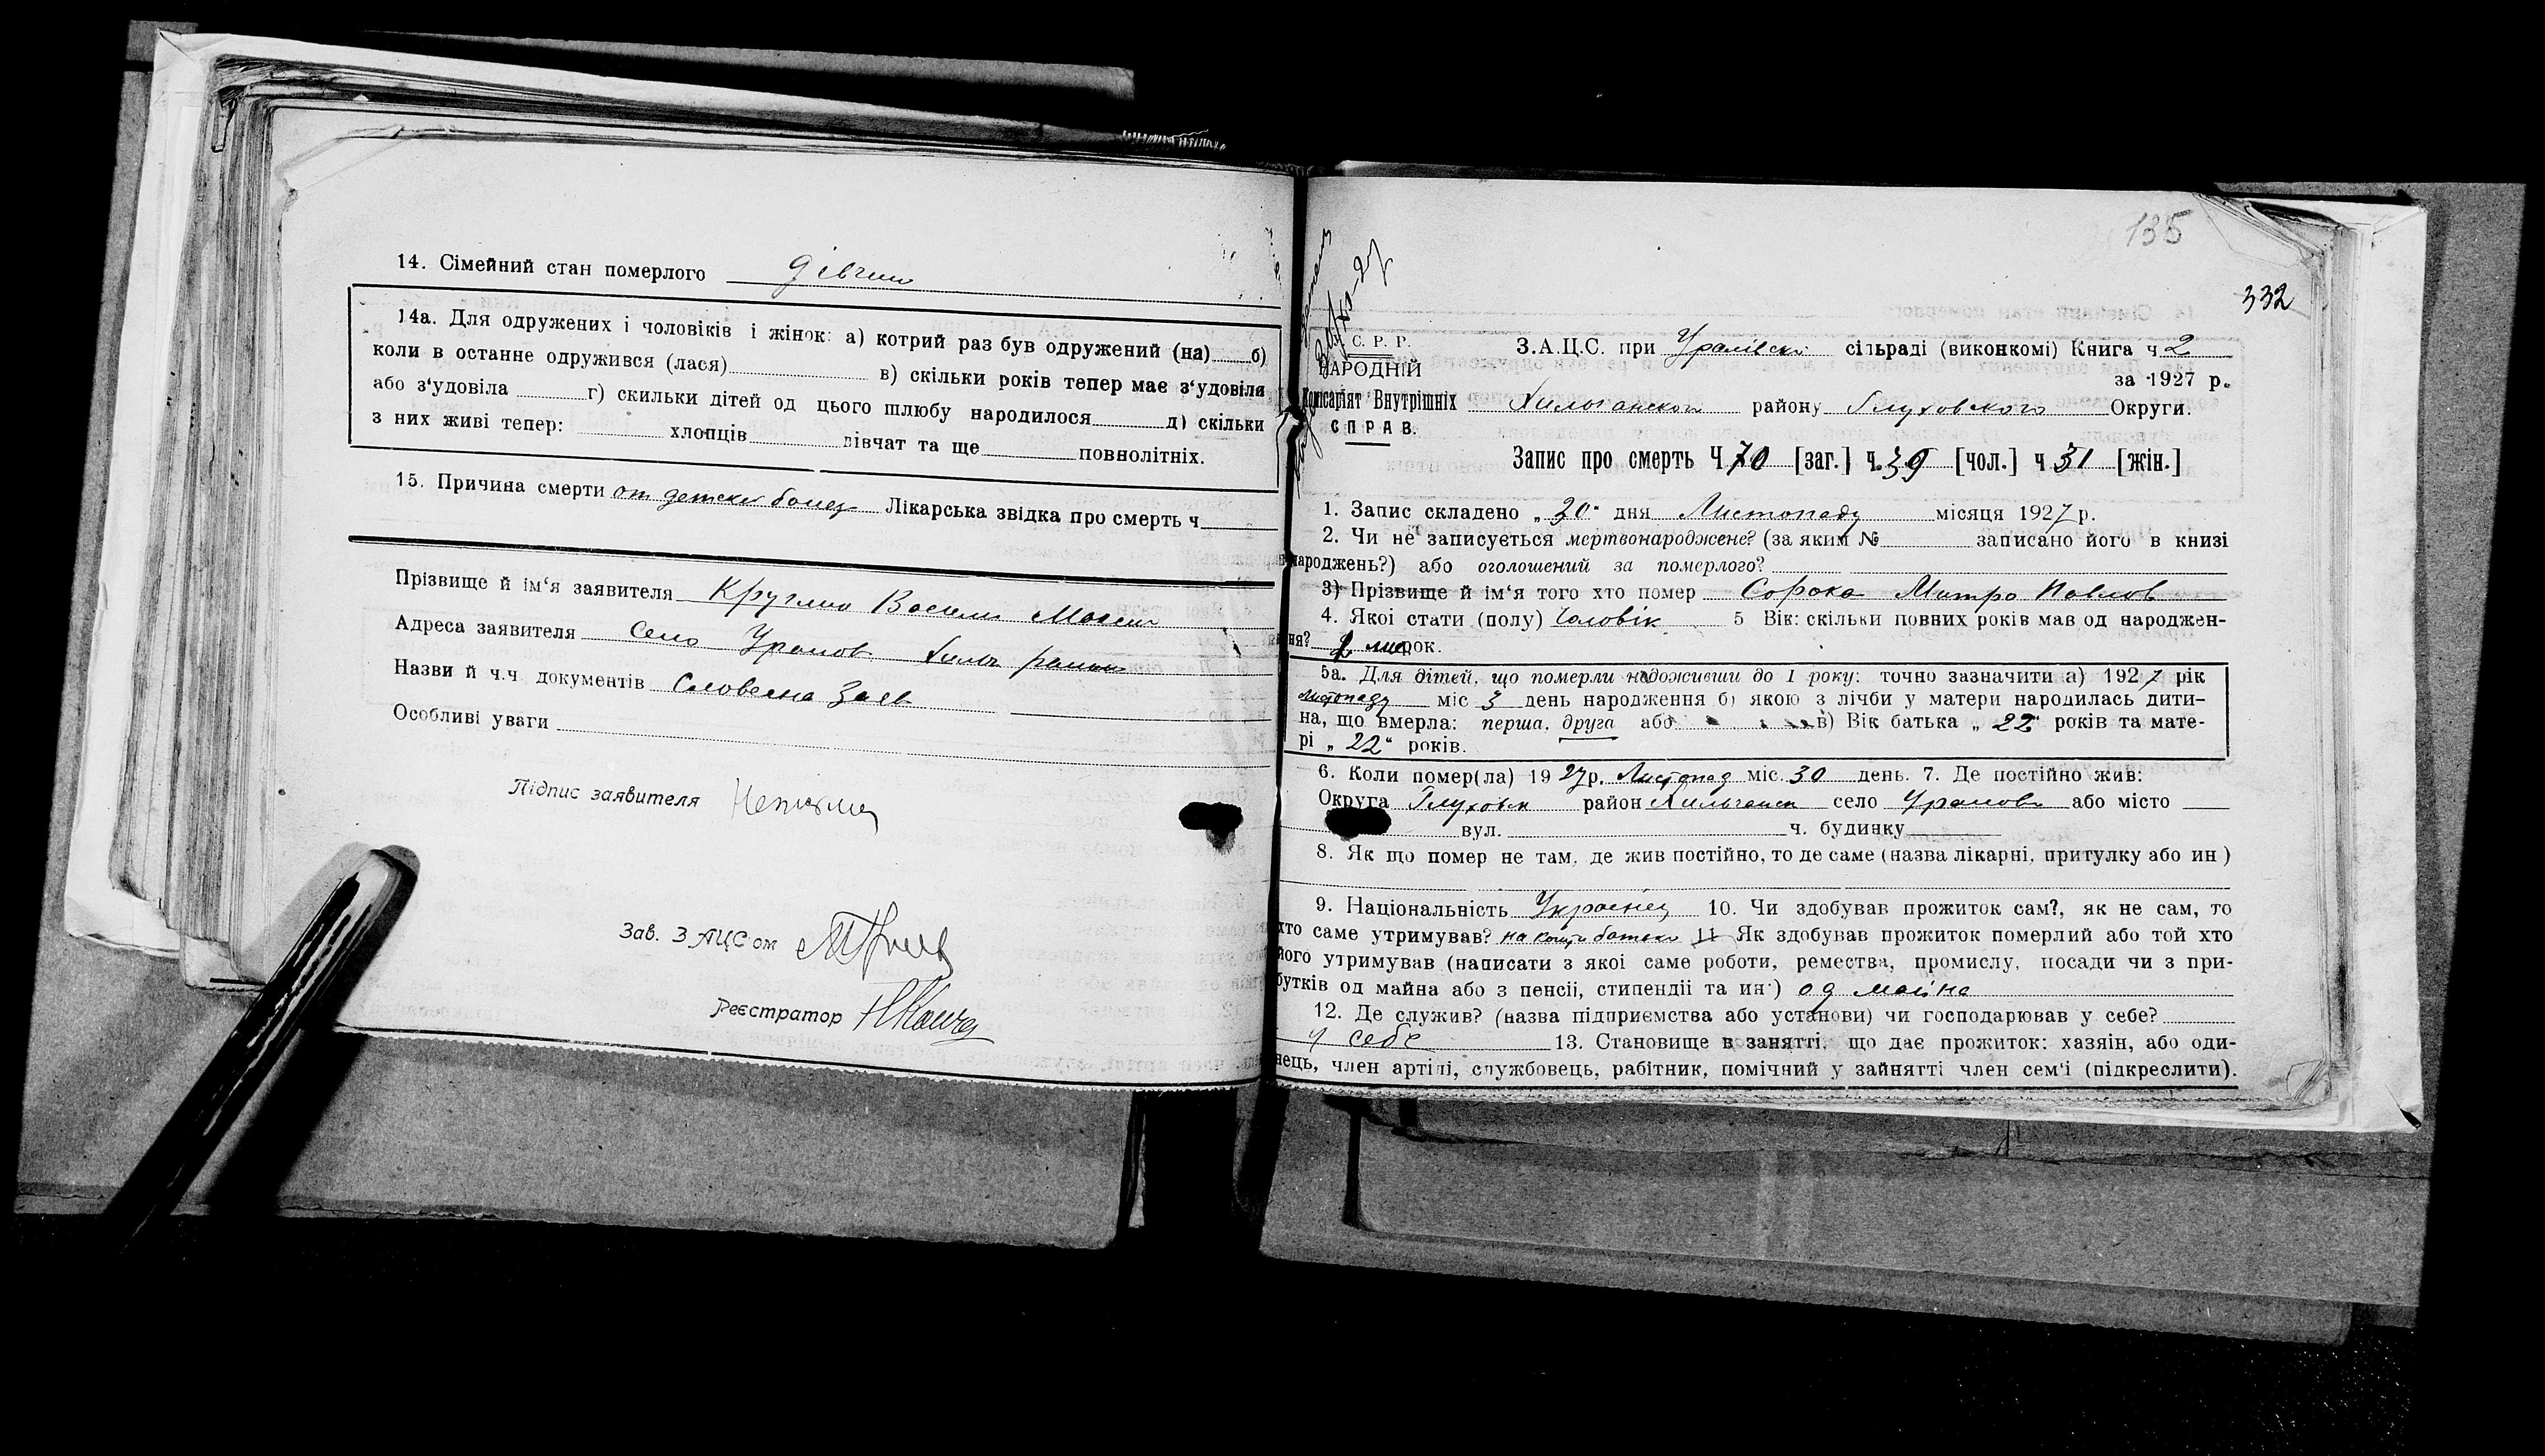 14. Сімейний стан померлого дівчин
14а. Для одружених і чоловіків і жінок: а) котрий раз був одружений (на) б)
коли в останне одружився (лася) в) скільки років тепер має з'удовіля
або з'удовіла г) скильки дітей од цього шлюбу народилося д) скільки
з них живі тепер: хлопців дівчат та ще повнолітніх.
15. Причина смерти от детских болез Лікарська звідка про смерть ч
Прізвище й ім'я заявителя Василь
Адреса заявителя Село Уралов район
Назви й ч.ч документів Словесна заяв
Особливі уваги
Підпис заявителя Неписьмен
Зав. ЗАЦС ом
Реєстратор
135
332
С. Р. Р.
НАРОДНІЙ
Комісаріят Внутрішніх
СПРАВ.
З.А.Ц.С. при Уралівськ сільраді (виконкомі) Книга ч 2
за 1927 р.
Хильчанськ району Глуховского Округи.
Запис про смерть Ч 70 [заг.] ч. 39 [чол.] ч 31 [жін.]
1. Запис складено „30" дня Листопаду місяця 1927 р.
2. Чи не записується мертвонароджене? (за яким № записано його в книзі
народжень?) або оголошений за померлого?
3) Прізвище й ім'я того хто помер Сорока Митро Павлов
4. Якої стати (полу) Чоловік 5 Вік: скільки повних років мав од народжен-
ня? рок.
5а. Для дітей, що померли недоживши до 1 року: точно зазначити а) 1927 рік
листопаду міс 3 день народження б) якою з лічби у матери народилась дити-
на, що вмерла: перша, друга або в) Вік батька „22" років та мате-
рі „22" років.
6. Коли помер(ла) 1927р. Листопад міс. 30 день. 7. Де постійно жив:
Округа Глуховськ район Хильчанськ село Уралов або місто
вул. ч. будинку
8. Як що помер не там, де жив постійно, то де саме (назва лікарні, притулку або ин)
9. Національність Українец 10. Чи здобував прожиток сам?, як не сам, то
хто саме утримував? на кошти батьки 11 Як здобував прожиток померлий або той хто
його утримував (написати з якої саме роботи, ремества, промислу, посади чи з при-
бутків од майна або з пенсії, стипендії та ин.) од майна
12. Де служив? (назва підприємства або установи) чи господарював у себе?
у себе 13. Становище в занятті, що дає прожиток: хазяін, або оди-
нець, член артілі, службовець, рабітник, помічний у зайнятті член сем'і (підкреслити).